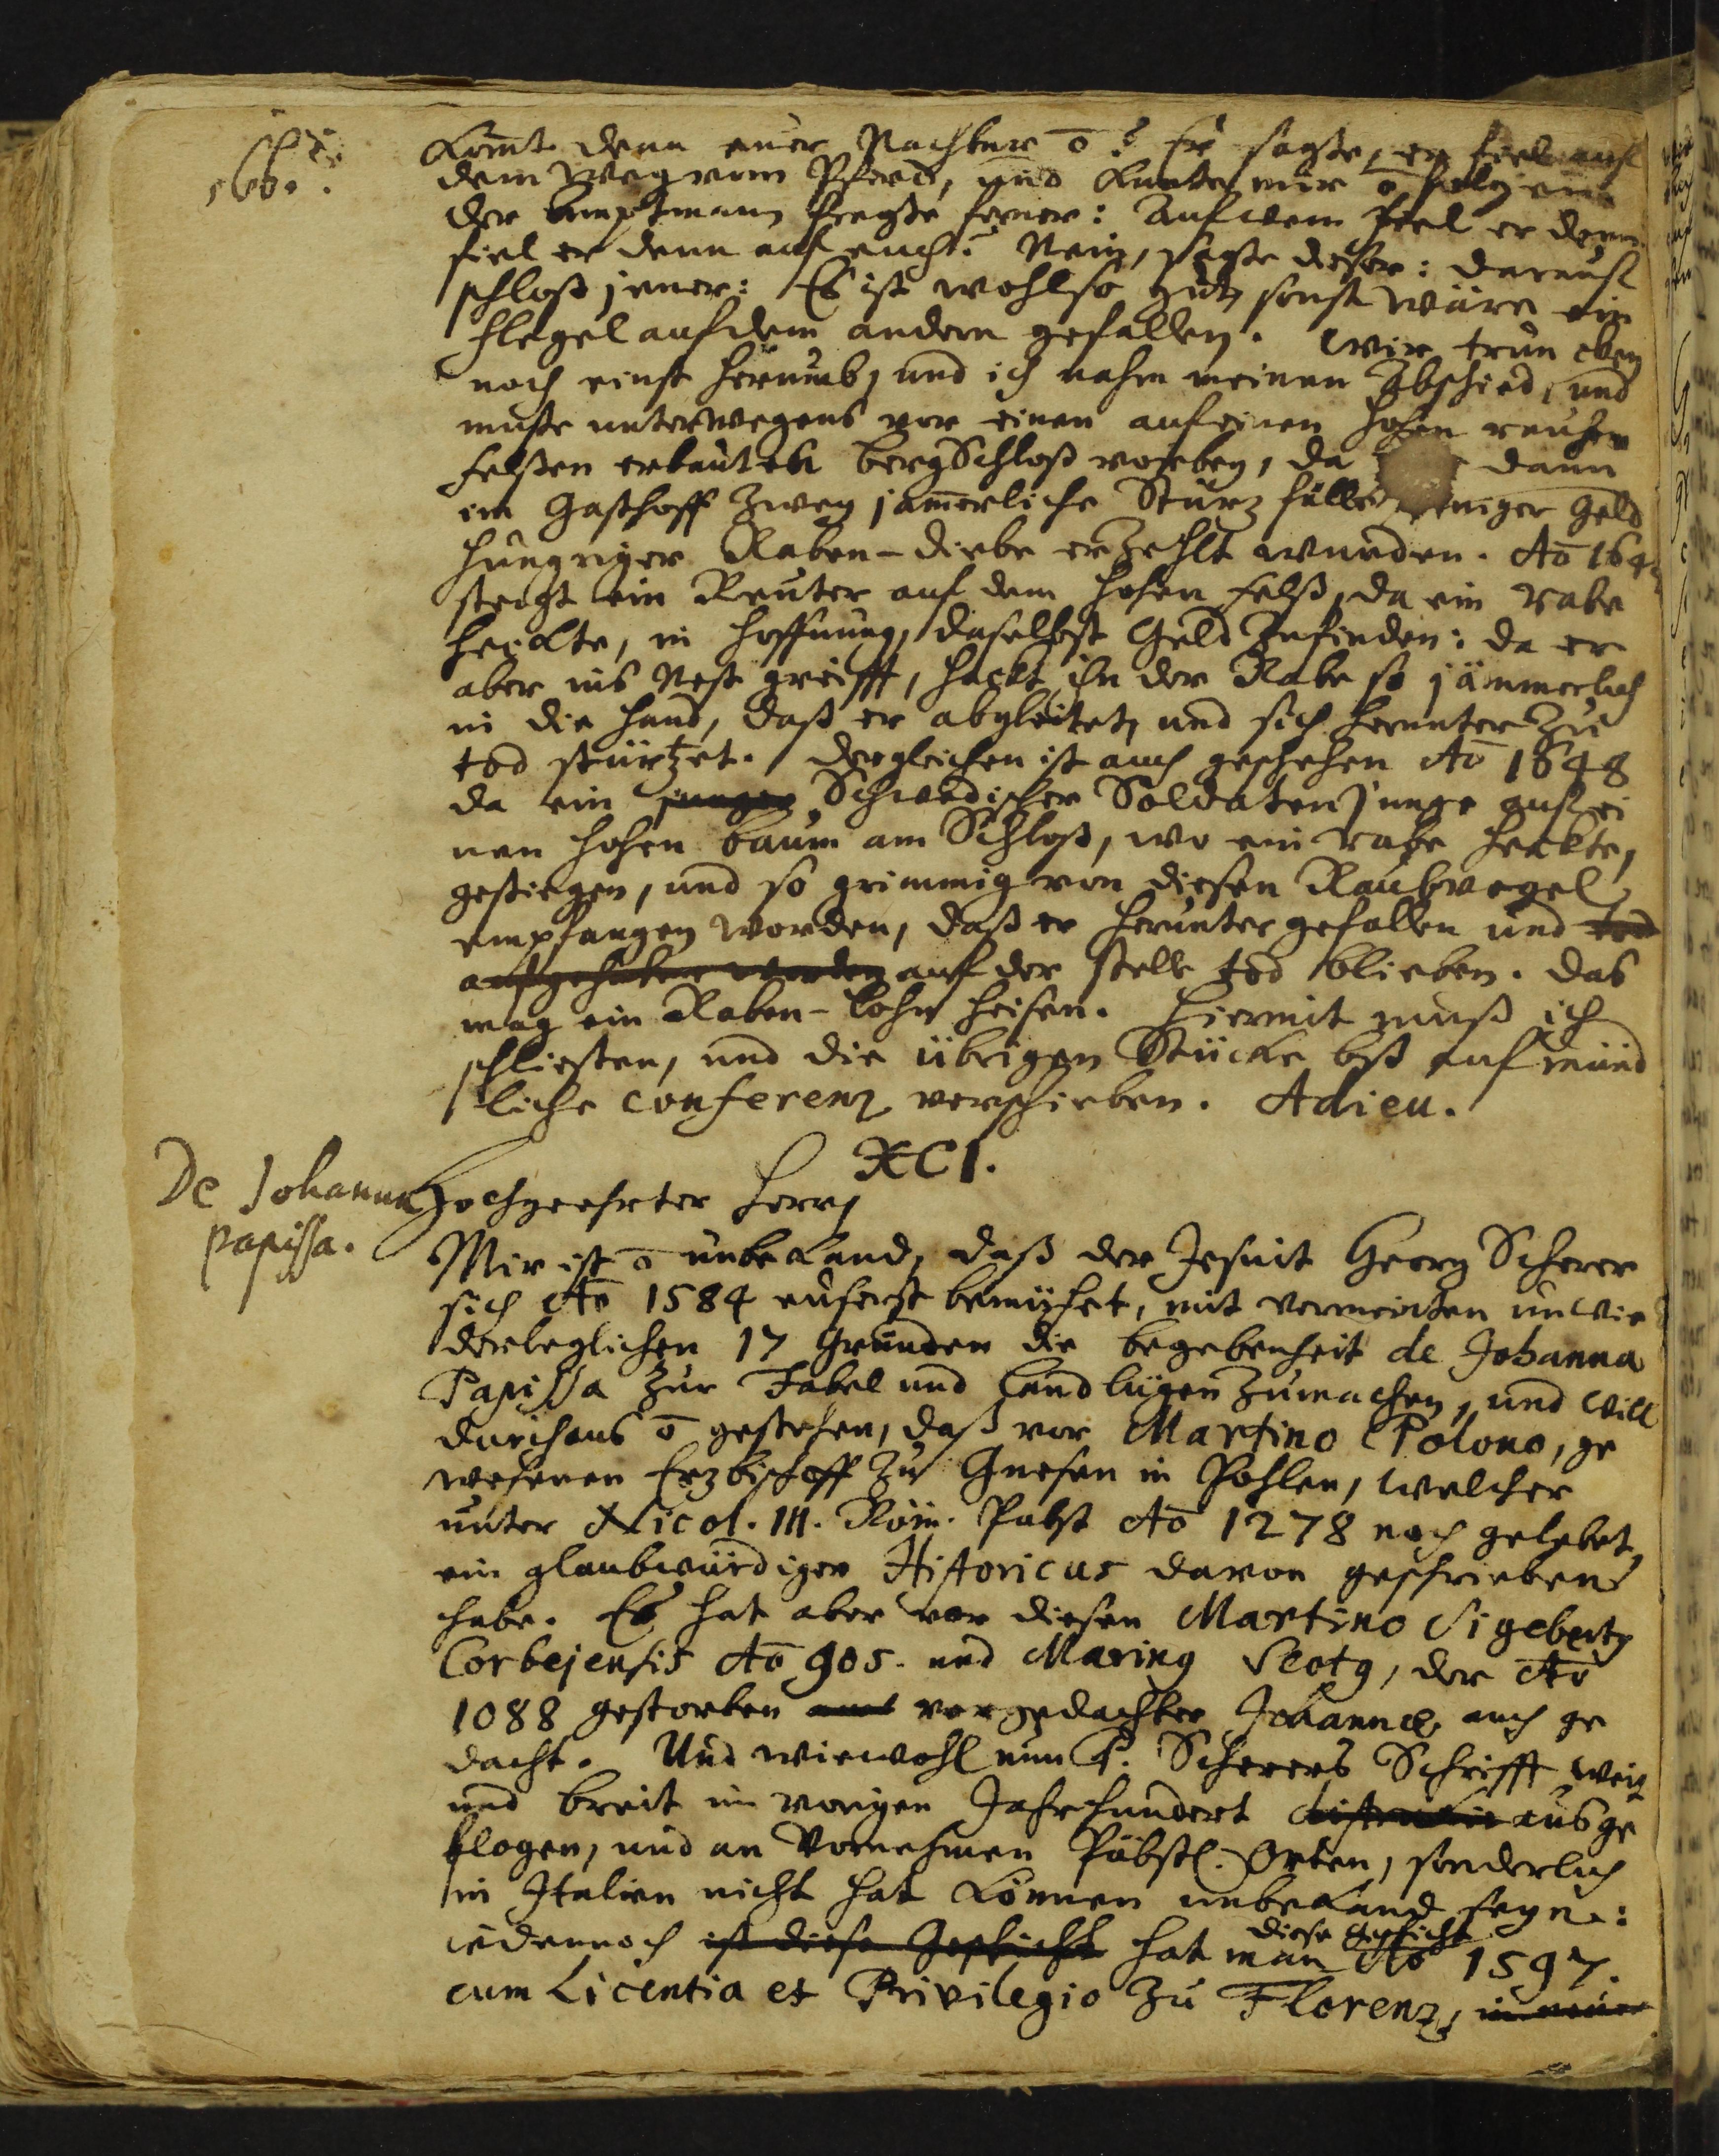 Kom̄t denn euer Nachbar ō? Er sagte, er fiel auf
dem Weg vom Pferd, und kunte mir ō folgen
der Amptmann fragte ferner: Auf wem fiel er denn
fiel er denn auf euch? Nein, sagte dieser: darauf
schloß jener: Es ist wohl so gut, sonst wäre ein
Flegel auf dem andern gefallen. Wir trun eben
noch einst herumb, und ich nahm meinen Abschied, und
muste unterwegens vor einen auf einen hohen rauhen
Felßen erbauten bergSchloß vorbey, da dann
im Gasthoff zwey jam̄erliche Sturz fälle einiger Geld
hungriger Raben-diebe erzehlt wurden. Aō 164
steigt ein Reuter auf dem hohen Felß, da ein Rabe
heckte, in Hoffnung, daselbst Geld zufinden: da er
aber ins Nest greifft, hackt ihn der Rabe so jämmerlich
in die Hand, daß er abgleitet, und sich herunter zu
tod stürtzet. Dergleichen ist auch geschehen Aō 1648
da ein junger Schwedischer Soldaten Junge auf ei
nen hohen baum am Schloß, wo ein Rabe heckte,
gestiegen, und so grimmig von diesen Raubvogel
empfangen worden, daß er herunter gefallen und tod
aufgehoben worden auf der stelle tod blieben. Das
mag ein Raben-lohn heisen. Hiermit muß ich
schliesten, und die übrigen Stücke biß auf münd
liche conferenz verschieben. Adieu.
XCI.
De Johanna
papissa.
Hochgeehrter Herr,
Mir ist ō unbekand, daß der Jesuit Georg Scherer
sich Aō 1584 euserst bemühet, mit vermeinten unwie
derleglichen 17 Gründen die begebenheit de Johanna
Papissa zur Fabel und Landlügen zumachen, und will
durchaus ō gestehen, daß vor Martino Polono, ge
wesenen Erzbischoff zu Gnesen in Pohlen, welcher
unter Nicol. III. Röm. Pabst Aō 1278 noch gelebet,
ein glaubwürdiger Historicus davon geschrieben
habe. Es hat aber vor diesen Martino Sigebert9
Corbejensis Aō 905. und Marin9 Scot9, der Aō
1088 gestorben vorgedachter Johannæ auch ge
dacht. Und wiewohl nun P. Scherers Schrifft weit
und breit im vorigen Jahrhundert ausge
flogen, und an Vornehmen Päbstl. Orten, sonderlich
in Italien nicht hat können unbekand seyn:
iedennoch ist diese Geschicht hat man diese Geschicht Aō 1597.
cum Licentia et Privilegio zu Florenz,